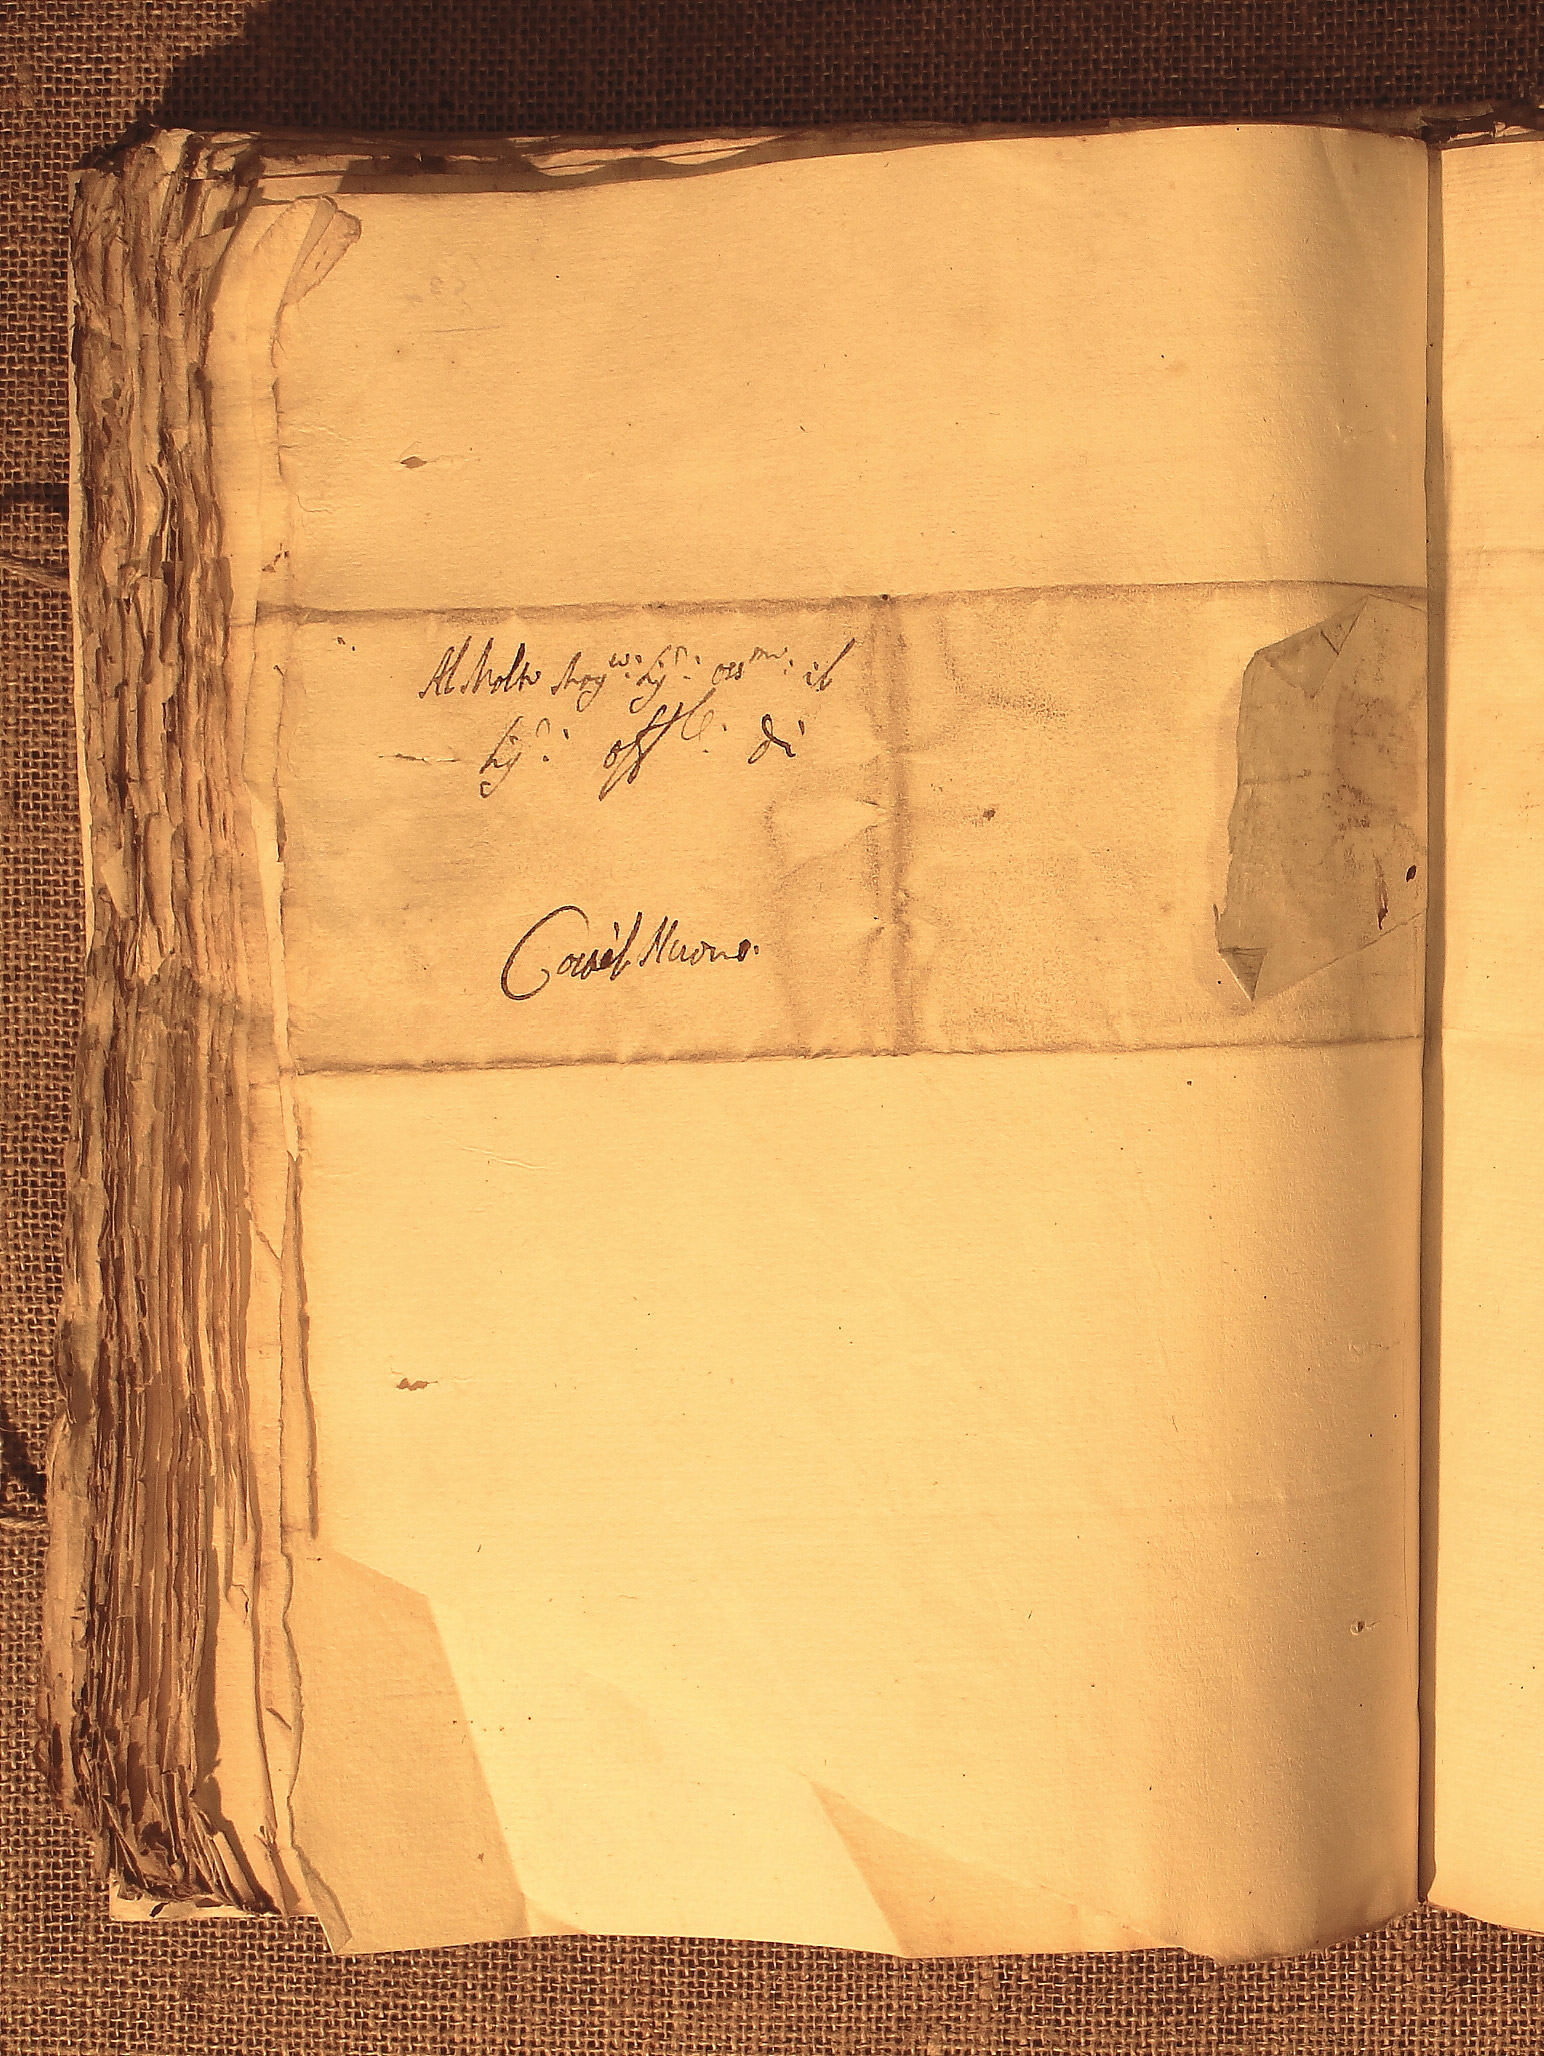 Al Molto Mag:co Sig:r oss:mo il
Sig:r Off:le di
Castel Nuovo.